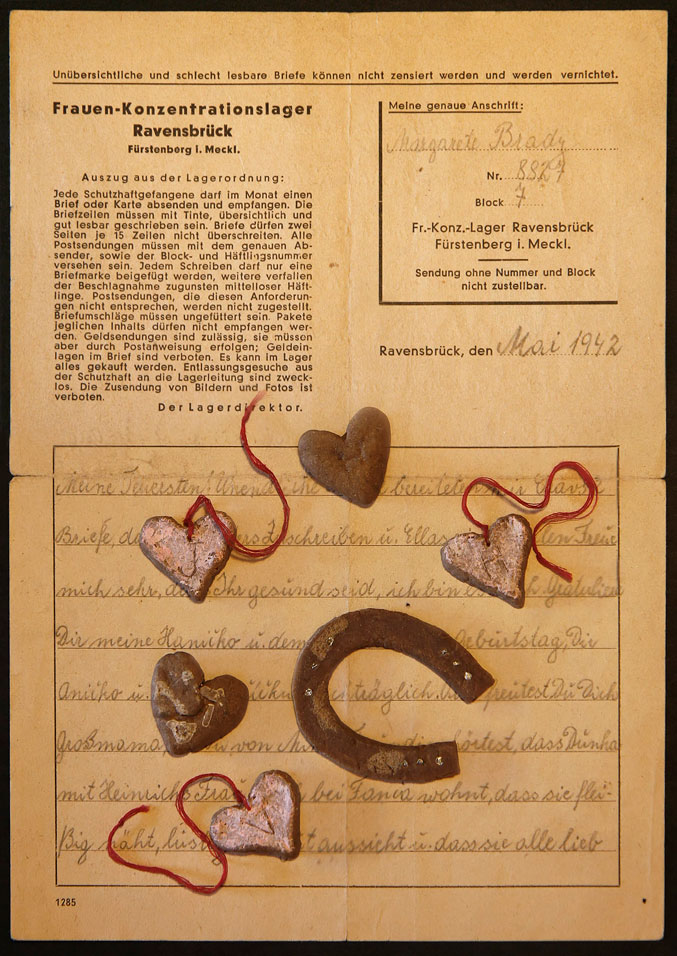 Unübersichtliche und schlecht lesbare Briefe können nicht zensiert werden und werden vernichtet.
Frauen-Konzentrationslager
Ravensbrück
Fürstenberg i. Meckl.
Auszug aus der Lagerordnung:
Jede Schutzhaftgefangene darf im Monat einen
Brief oder Karte absenden und empfangen. Die
Briefzeilen müssen mit Tinte, übersichtlich und
gut lesbar geschrieben sein. Briefe dürfen zwei
Seiten je 15 Zeilen nicht überschreiten. Alle
Postsendungen müssen mit dem genauen Ab-
sender, sowie der Block- und Häftlingsnummer
versehen sein. Jedem Schreiben darf nur eine
Briefmarke beigefügt werden, weitere verfallen
der Beschlagnahme zugunsten mittelloser Häft-
linge. Postsendungen, die diesen Anforderun-
gen nicht entsprechen, werden nicht zugestellt.
Briefumschläge müssen ungefüttert sein. Pakete
jeglichen Inhalts dürfen nicht empfangen wer-
den. Geldsendungen sind zulässig, sie müssen
aber durch Postanweisung erfolgen; Geldein-
lagen im Brief sind verboten. Es kann im Lager
alles gekauft werden. Entlassungsgesuche aus
der Schutzhaft an die Lagerleitung sind zweck-
los. Die Zusendung von Bildern und Fotos ist
verboten.
Der Lagerdirektor.
Meine genaue Anschrift:
Margarete Brady
Nr. 8827
Block 7
Fr.-Konz.-Lager Ravensbrück
Fürstenberg i. Meckl.
Sendung ohne Nummer und Block
nicht zustellbar.
Ravensbrück, den Mai 1942
Meine Teuersten! bereiteten mir
Briefe, schreiben u. Ellas
mich sehr, Ihr gesund seid, ich bin
Dir meine Haničko u. dem Geburtstag, Dir
u. freutest Du Dich
Grossmama, von dass
mit Heinrichs bei Fanca wohnt, dass sie flei-
ßig näht, aussieht u. dass sie alle lieb
1285